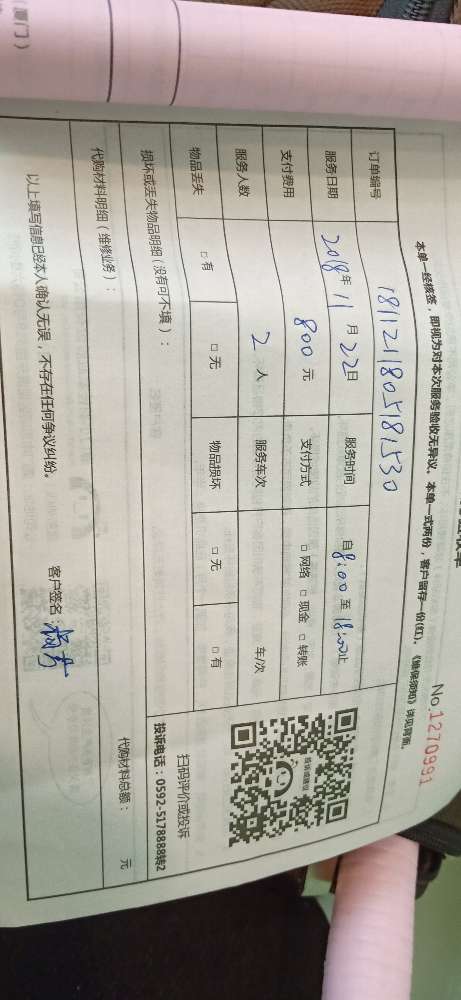 (厦门)
No.1270991
本单一经核签，即视为对本次服务验收无异议。本单一式两份，客户留存一份(红)。《维保须知》详见背面。
订单编号 1811211805181530
服务日期 2018年 11 月 22日 服务时间 自8:00至18:00止
支付费用 800 元 支付方式 □ 网络 □ 现金 □ 转账
服务人数 2 人 服务车次 车/次
物品丢失 □ 有 □ 无 物品损坏 □ 无 □ 有
扫码评价或投诉
投诉电话：0592-5178888转2
损坏或丢失物品明细（没有可不填）：
代购材料明细（维修业务）：
代购材料总额： 元
以上填写信息已经本人确认无误，不存在任何争议纠纷。
客户签名：